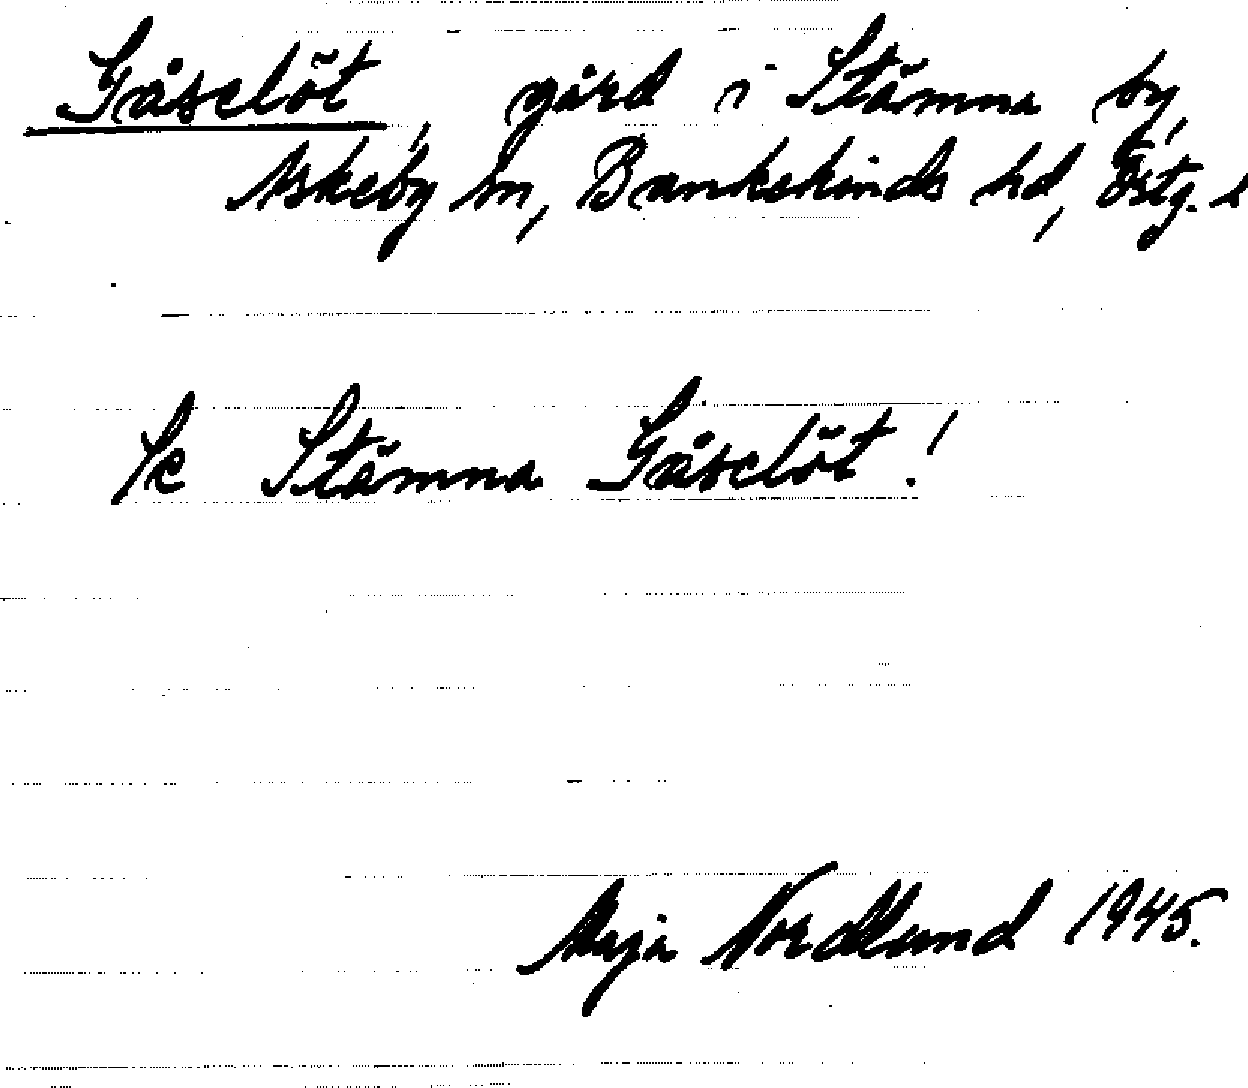 Gåselöt, gård i Stämna by,
Askeby sn, Bankekinds hd, Östg. l
Se Stämna Gåselöt!
Maja Nordlund 1945.